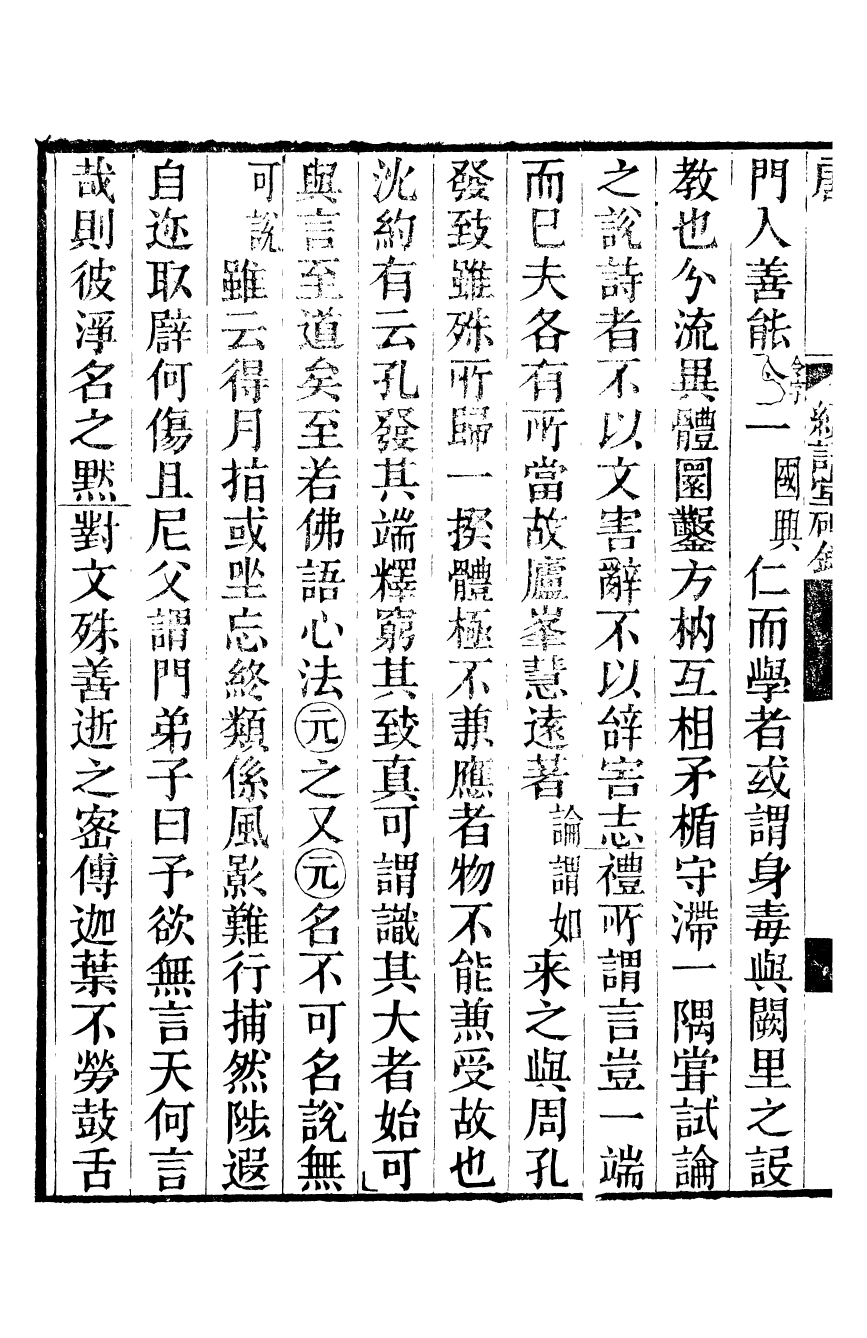 門人善能仝一國興仁而學者或謂身毒與闕里之設
教也分流異體圓鑿方枘互相矛楯守滯一隅嘗試論
之説詩者不以文害辭不以辝害志禮所謂言豈一端
而巳夫各有所當故廬峯慧遠著論謂如來之與周孔
發致雖殊所歸一揆體極不兼應者物不能兼受故也
沈約有云孔發其端釋窮其致真可謂識其大者始可
與言至道矣至若佛語心法元之又元名不可名説無
可説雖云得月指或坐忘終類係風影難行捕然陟遐
自迩取辟何傷且尼父謂門弟子曰予欲無言天何言
哉則彼淨名之默對文殊善逝之密傳迦葉不勞鼓舌